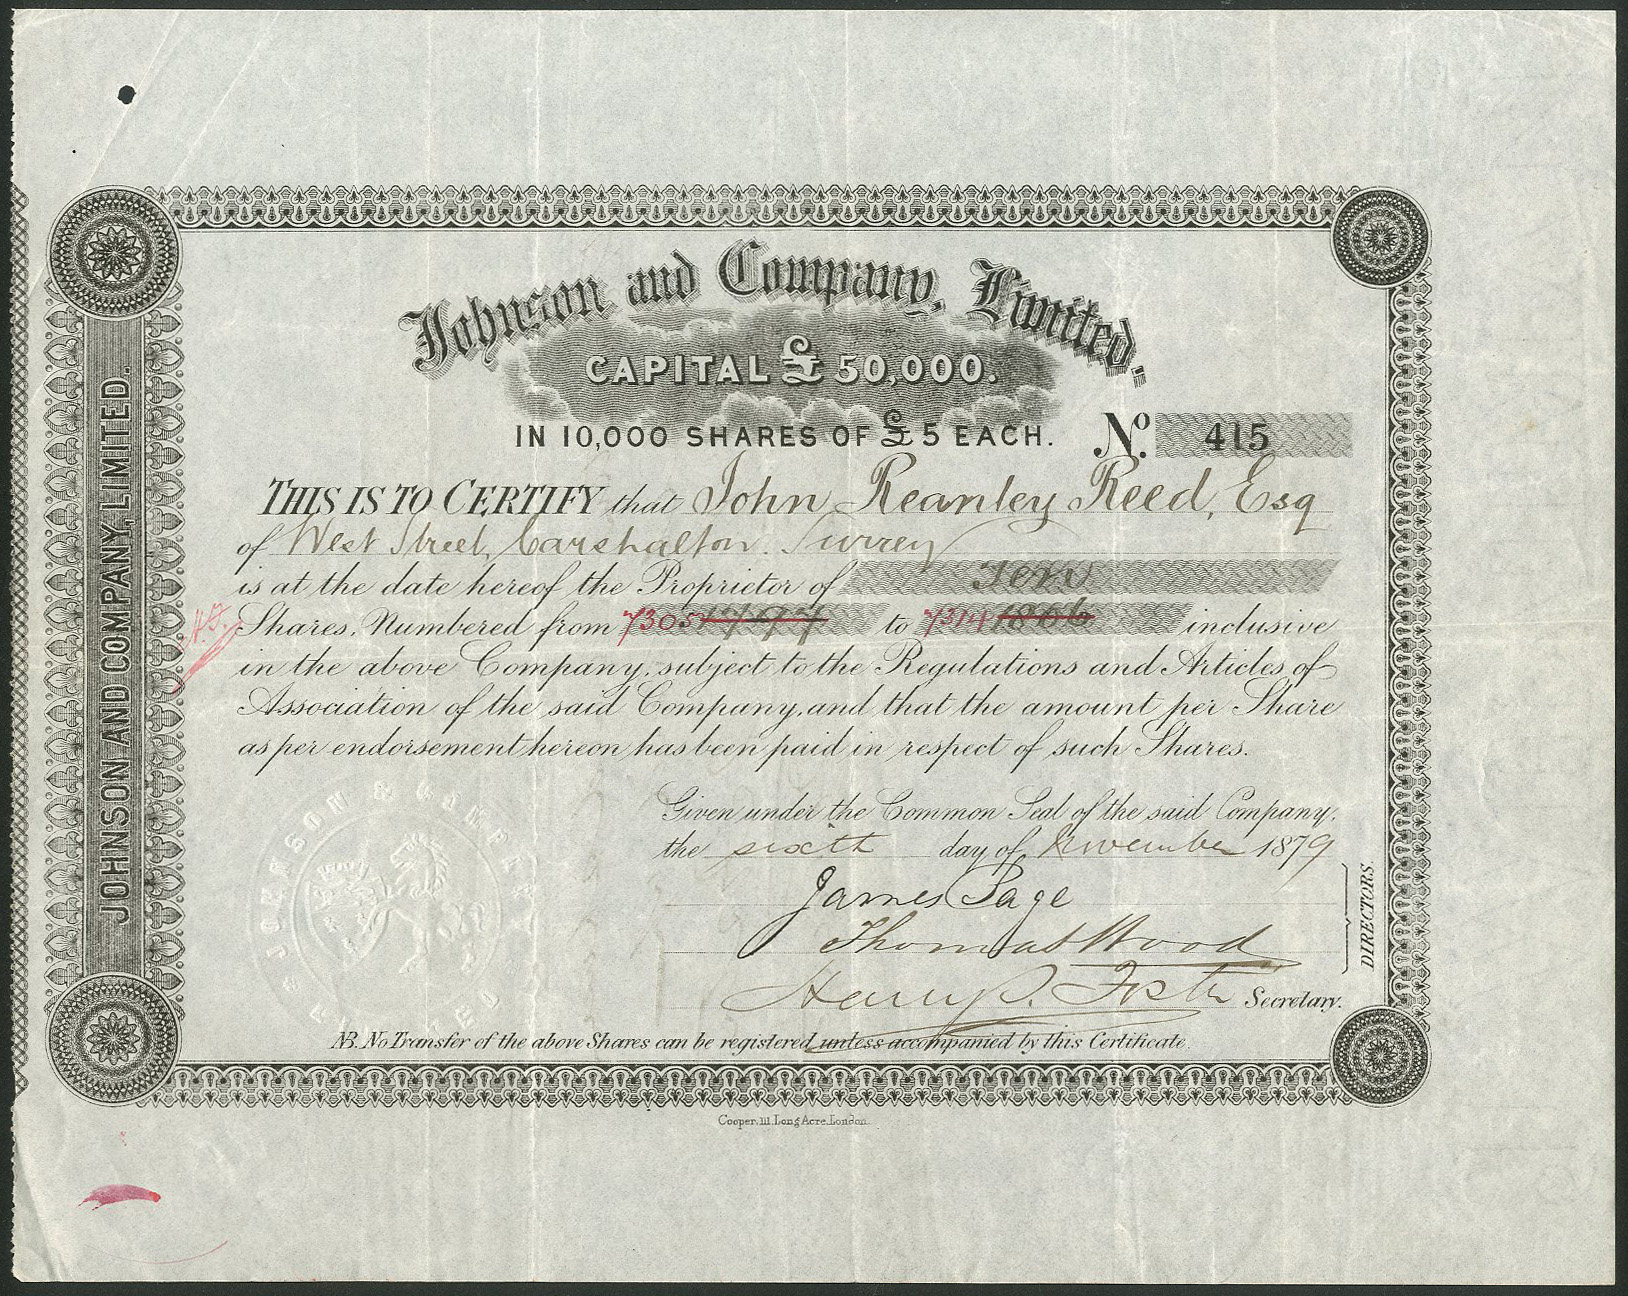 Johnson and Company, Limited.
CAPITAL £ 50,000.
IN 10,000 SHARES OF £5 EACH.
No. 415
THIS IS TO CERTIFY that John Reanley Reed, Esq
of West Street, Carshalton. Surrey
is at the date hereof the Proprietor of Ten
Shares, Numbered from 7305 1797 to 7314 1806 inclusive
in the above Company, subject to the Regulations and Articles of
Association of the said Company, and that the amount per Share
as per endorsement hereon has been paid in respect of such Shares.
Given under the Common Seal of the said Company,
the sixth day of November 1879
James Page
Thomas Wood
DIRECTORS.
Henry P. Foster Secretary.
NB. No Transfer of the above Shares can be registered unless accompanied by this Certificate.
Cooper, 111, Long Acre, London.
JOHNSON AND COMPANY, LIMITED.
JOHNSON & COMPANY LIMITED